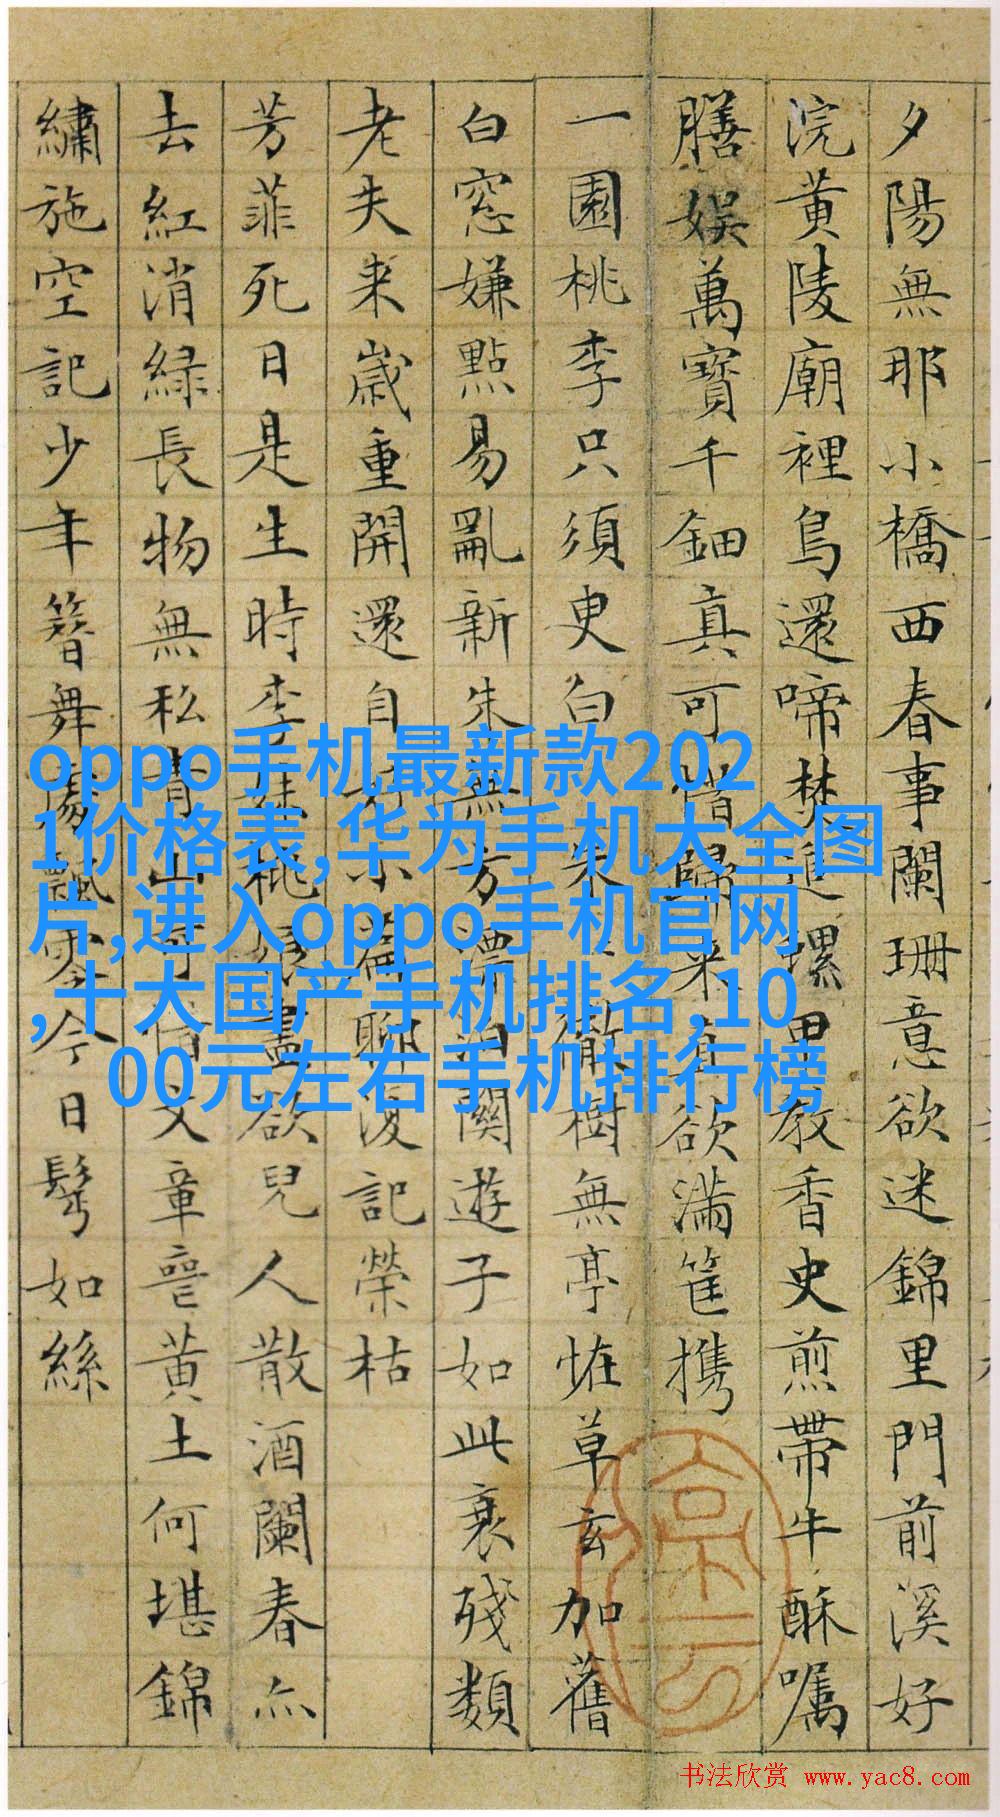 夕陽無那小橋西春事闌珊意欲迷錦里門前溪好
浣黄陵廟裡鳥還啼焚進螺甲教香史煎帶牛酥嘱
膳娱萬寶千鈿真可惜歸來直欲滿筐携
一園桃李只須臾白朱徹樹無亭怪草玄加舊
白窓嫌點易亂新朱無方漂泊關遊子如此衰殘類
老失来歲重開還自小篇聊復記榮枯
芳菲死日是生時李妹桃娘盡欲兒人散酒闌春亦
去紅消緑長物無私青山可惜文章喪黄土何堪錦
繡施空記少年簪舞處飄零今日鬂如絲
oppo手机最新款202
1价格表,华为手机大全图
片,进入oppo手机官网
,十大国产手机排名,10
00元左右手机排行榜
书法欣赏 www.yac8.com